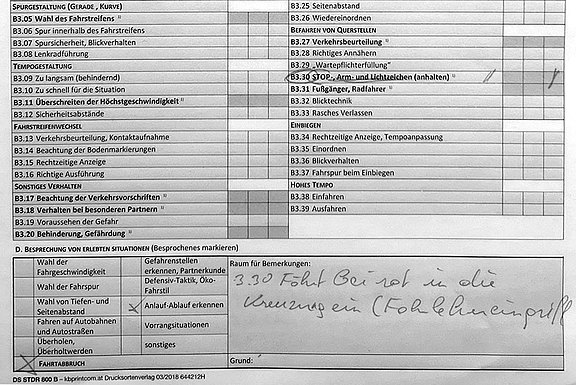 SPURGESTALTUNG (GERADE , KURVE)
B3.05 Wahl des Fahrstreifens 1)
B3.06 Spur innerhalb des Fahrstreifens
B3.07 Spursicherheit, Blickverhalten
B3.08 Lenkradführung
TEMPOGESTALTUNG
B3.09 Zu langsam (behindernd)
B3.10 Zu schnell für die Situation
B3.11 Überschreiten der Höchstgeschwindigkeit 1)
B3.12 Sicherheitsabstände
FAHRSTREIFENWECHSEL
B3.13 Verkehrsbeurteilung, Kontaktaufnahme
B3.14 Beachtung der Bodenmarkierungen
B3.15 Rechtzeitige Anzeige
B3.16 Richtige Ausführung
SONSTIGES VERHALTEN
B3.17 Beachtung der Verkehrsvorschriften 1)
B3.18 Verhalten bei besonderen Partnern 1)
B3.19 Voraussehen der Gefahr
B3.20 Behinderung, Gefährdung 1)
B3.25 Seitenabstand
B3.26 Wiedereinordnen
BEFAHREN VON QUERSTELLEN
B3.27 Verkehrsbeurteilung 1)
B3.28 Richtiges Annähern
B3.29 „Wartepflichterfüllung"
B3.30 STOP-, Arm- und Lichtzeichen (anhalten) 1)
B3.31 Fußgänger, Radfahrer 1)
B3.32 Blicktechnik
B3.33 Rasches Verlassen
EINBIEGEN
B3.34 Rechtzeitige Anzeige, Tempoanpassung
B3.35 Einordnen
B3.36 Blickverhalten
B3.37 Fahrspur beim Einbiegen
HOHES TEMPO
B3.38 Einfahren
B3.39 Ausfahren
D. BESPRECHUNG VON ERLEBTEN SITUATIONEN (Besprochenes markieren)
Wahl der
Fahrgeschwindigkeit
Wahl der Fahrspur
Wahl von Tiefen- und
Seitenabstand
Fahren auf Autobahnen
und Autostraßen
Überholen,
Überholtwerden
X FAHRTABBRUCH
Gefahrenstellen
erkennen, Partnerkunde
Defensiv-Taktik, Öko-
Fahrstil
X Anlauf-Ablauf erkennen
Vorrangsituationen
sonstiges
Raum für Bemerkungen:
3.30 Fährt Bei rot in die
Kreuzung ein (Fahrlehrereingriff
Grund:
DS STDR 800 B – kbprintcom.at Drucksortenverlag 03/2018 644212H